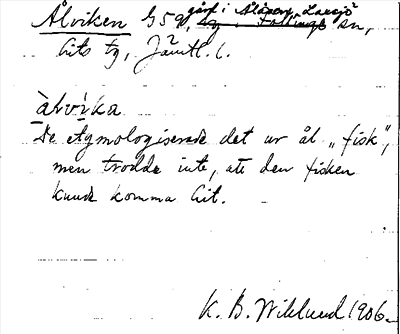 Ålviken G5a, gård i Raksjö sn,
Lits tg, Jämtl. l.
àlvika
De etymologiserade det ur ål „fisk",
men trodde inte, att den fisken
kunde komma hit.
K. B. Wiklund 1906.